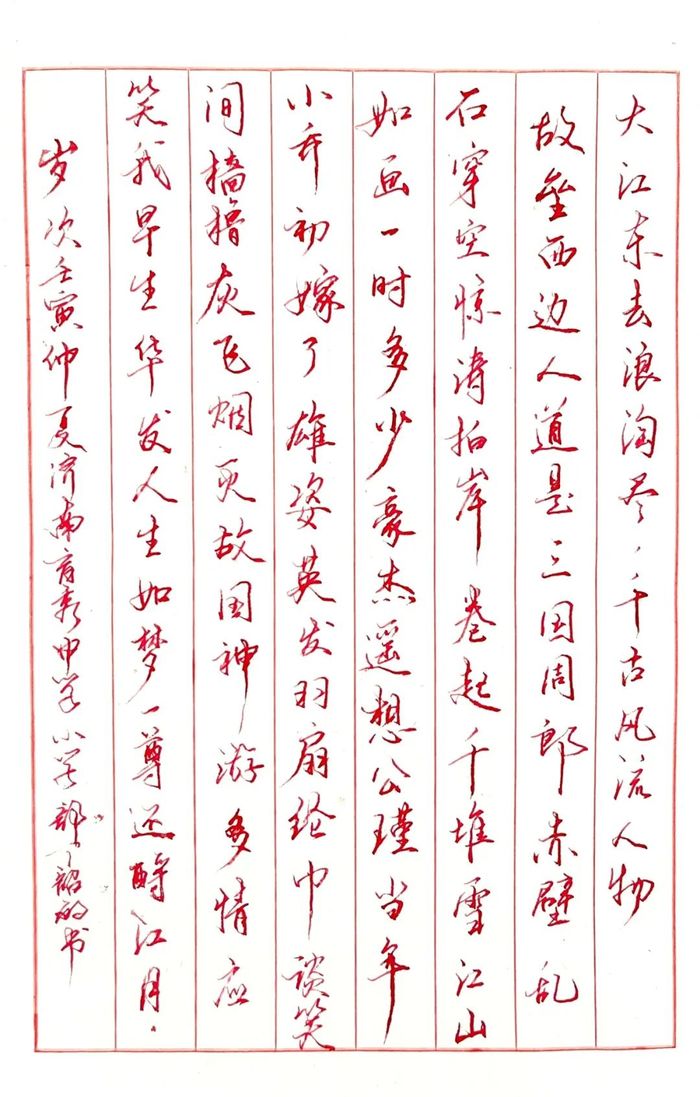 大江东去浪淘尽，千古风流人物
故垒西边人道是三国周郎赤壁乱
石穿空惊涛拍岸卷起千堆雪江山
如画一时多少豪杰遥想公瑾当年
小乔初嫁了雄姿英发羽扇纶巾谈笑
间樯橹灰飞烟灭故国神游多情应
笑我早生华发人生如梦一尊还酹江月.
岁次壬寅仲夏济南育秀中学小学部丁韶的书